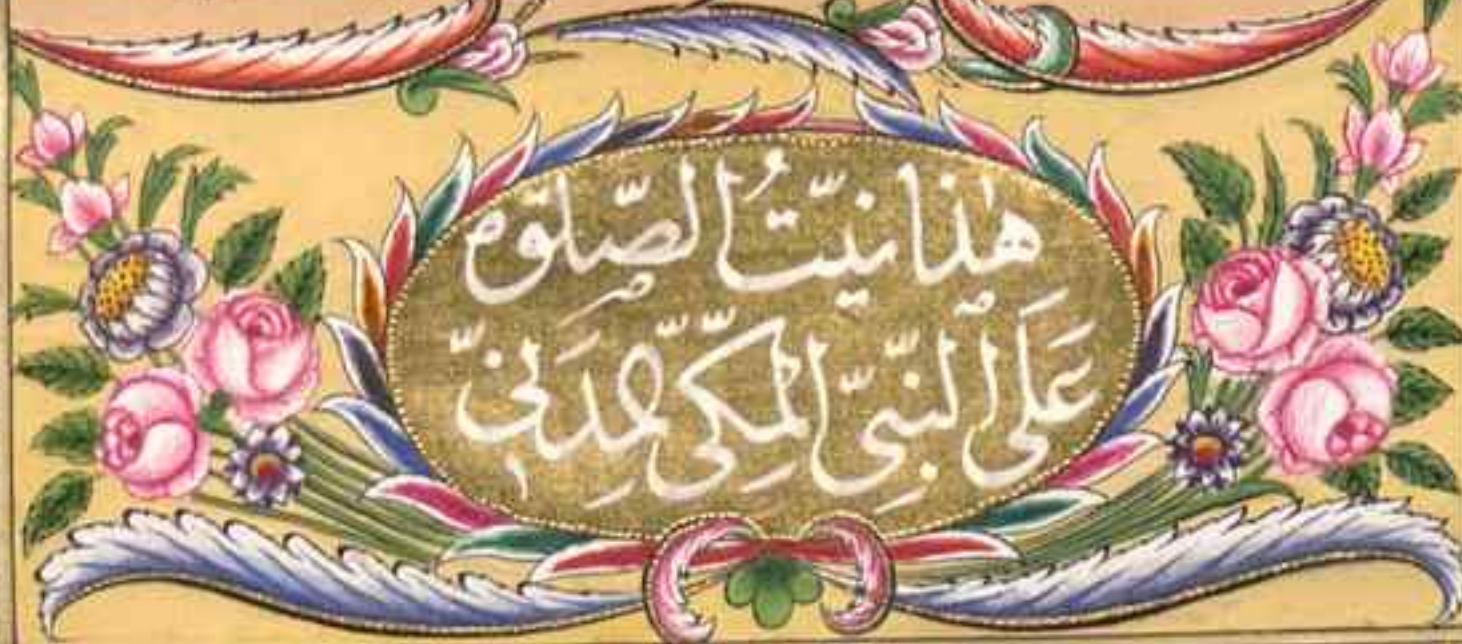 هٰذا نيّتُ الصّلوٰة
عَلَى النبيّ المكّيّ المدَنيّ